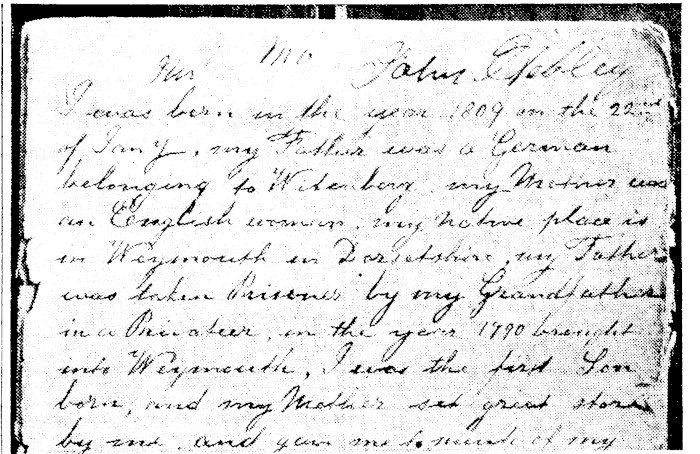 Mr Mo John Ebbley
I was born in the year 1809 on the 22nd
of Jany, my Father was a German
belonging to my Mother was
an English woman, my native place is
in Weymouth in Dorsetshire, my Father
was taken Prisoner by my Grandfather
in a Privateer, in the year 1790 brought
into Weymouth, I was the first Son
born, and my Mother set great store
by me and gave me to much of my